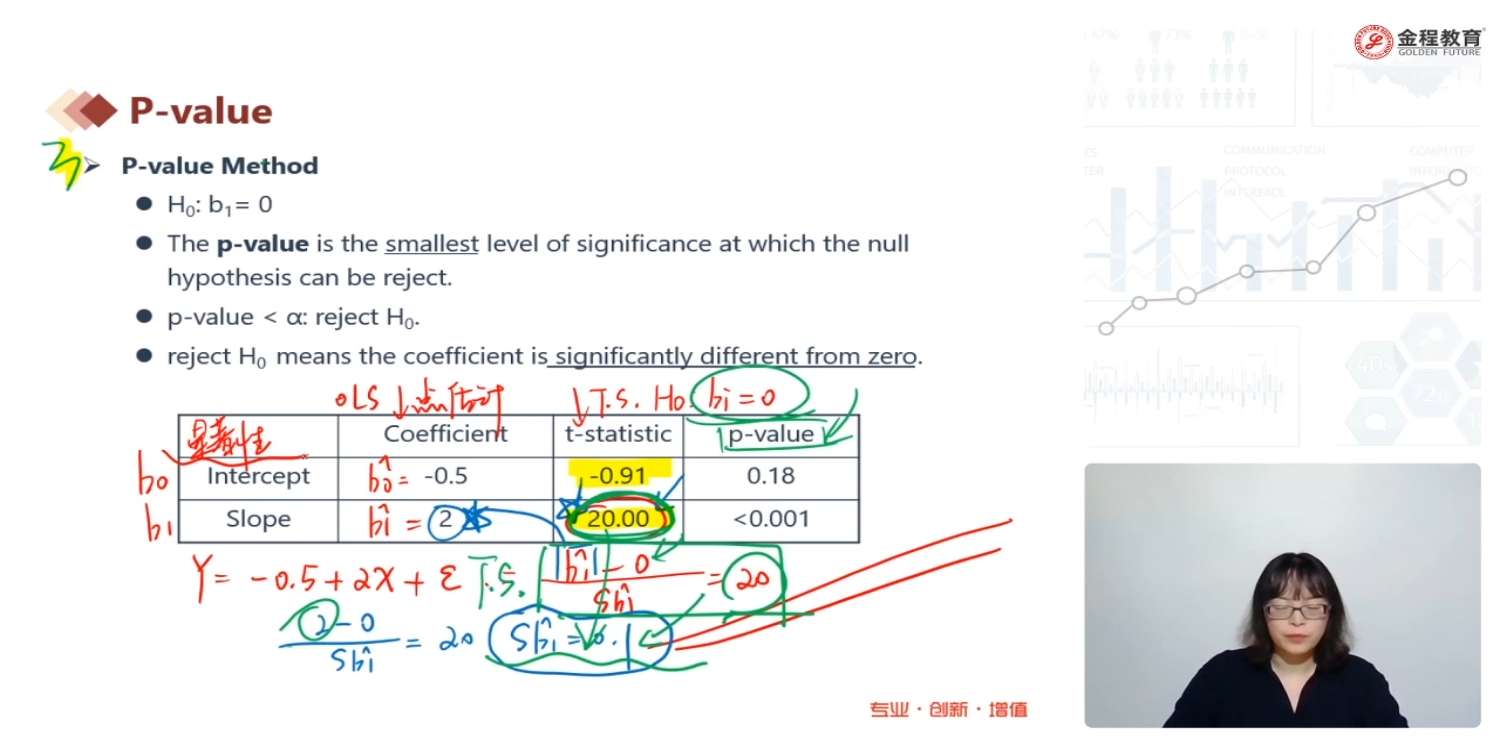 金程教育
GOLDEN FUTURE
P-value
P-value Method
H₀: b₁= 0
The p-value is the smallest level of significance at which the null
hypothesis can be reject.
p-value < α: reject H₀.
reject H₀ means the coefficient is significantly different from zero.
OLS ↓点估计 ↓T.S. H₀: b̂₁=0
显著性 Coefficient t-statistic p-value
b₀ Intercept b̂₀= -0.5 -0.91 0.18
b₁ Slope b̂₁= 2 20.00 <0.001
Y= -0.5+2X+ε T.S. |b̂₁|-0 = 20
Sb̂₁
2-0 = 20 Sb̂₁=0.1
Sb̂₁
专业·创新·增值
COMMUNICATION
PROTOCOL
INTERFACE